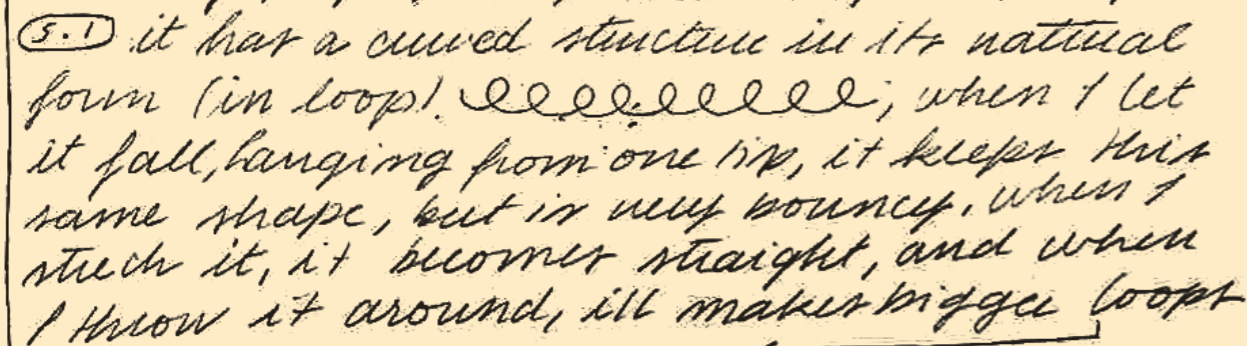 5.1 it has a curved structure in its natural
form (in loop). , when I let
it fall, hanging from one tip, it keeps this
same shape, but is very bouncy. when I
strech it, it becomes straight, and when
I throw it around, ill makes bigger loops